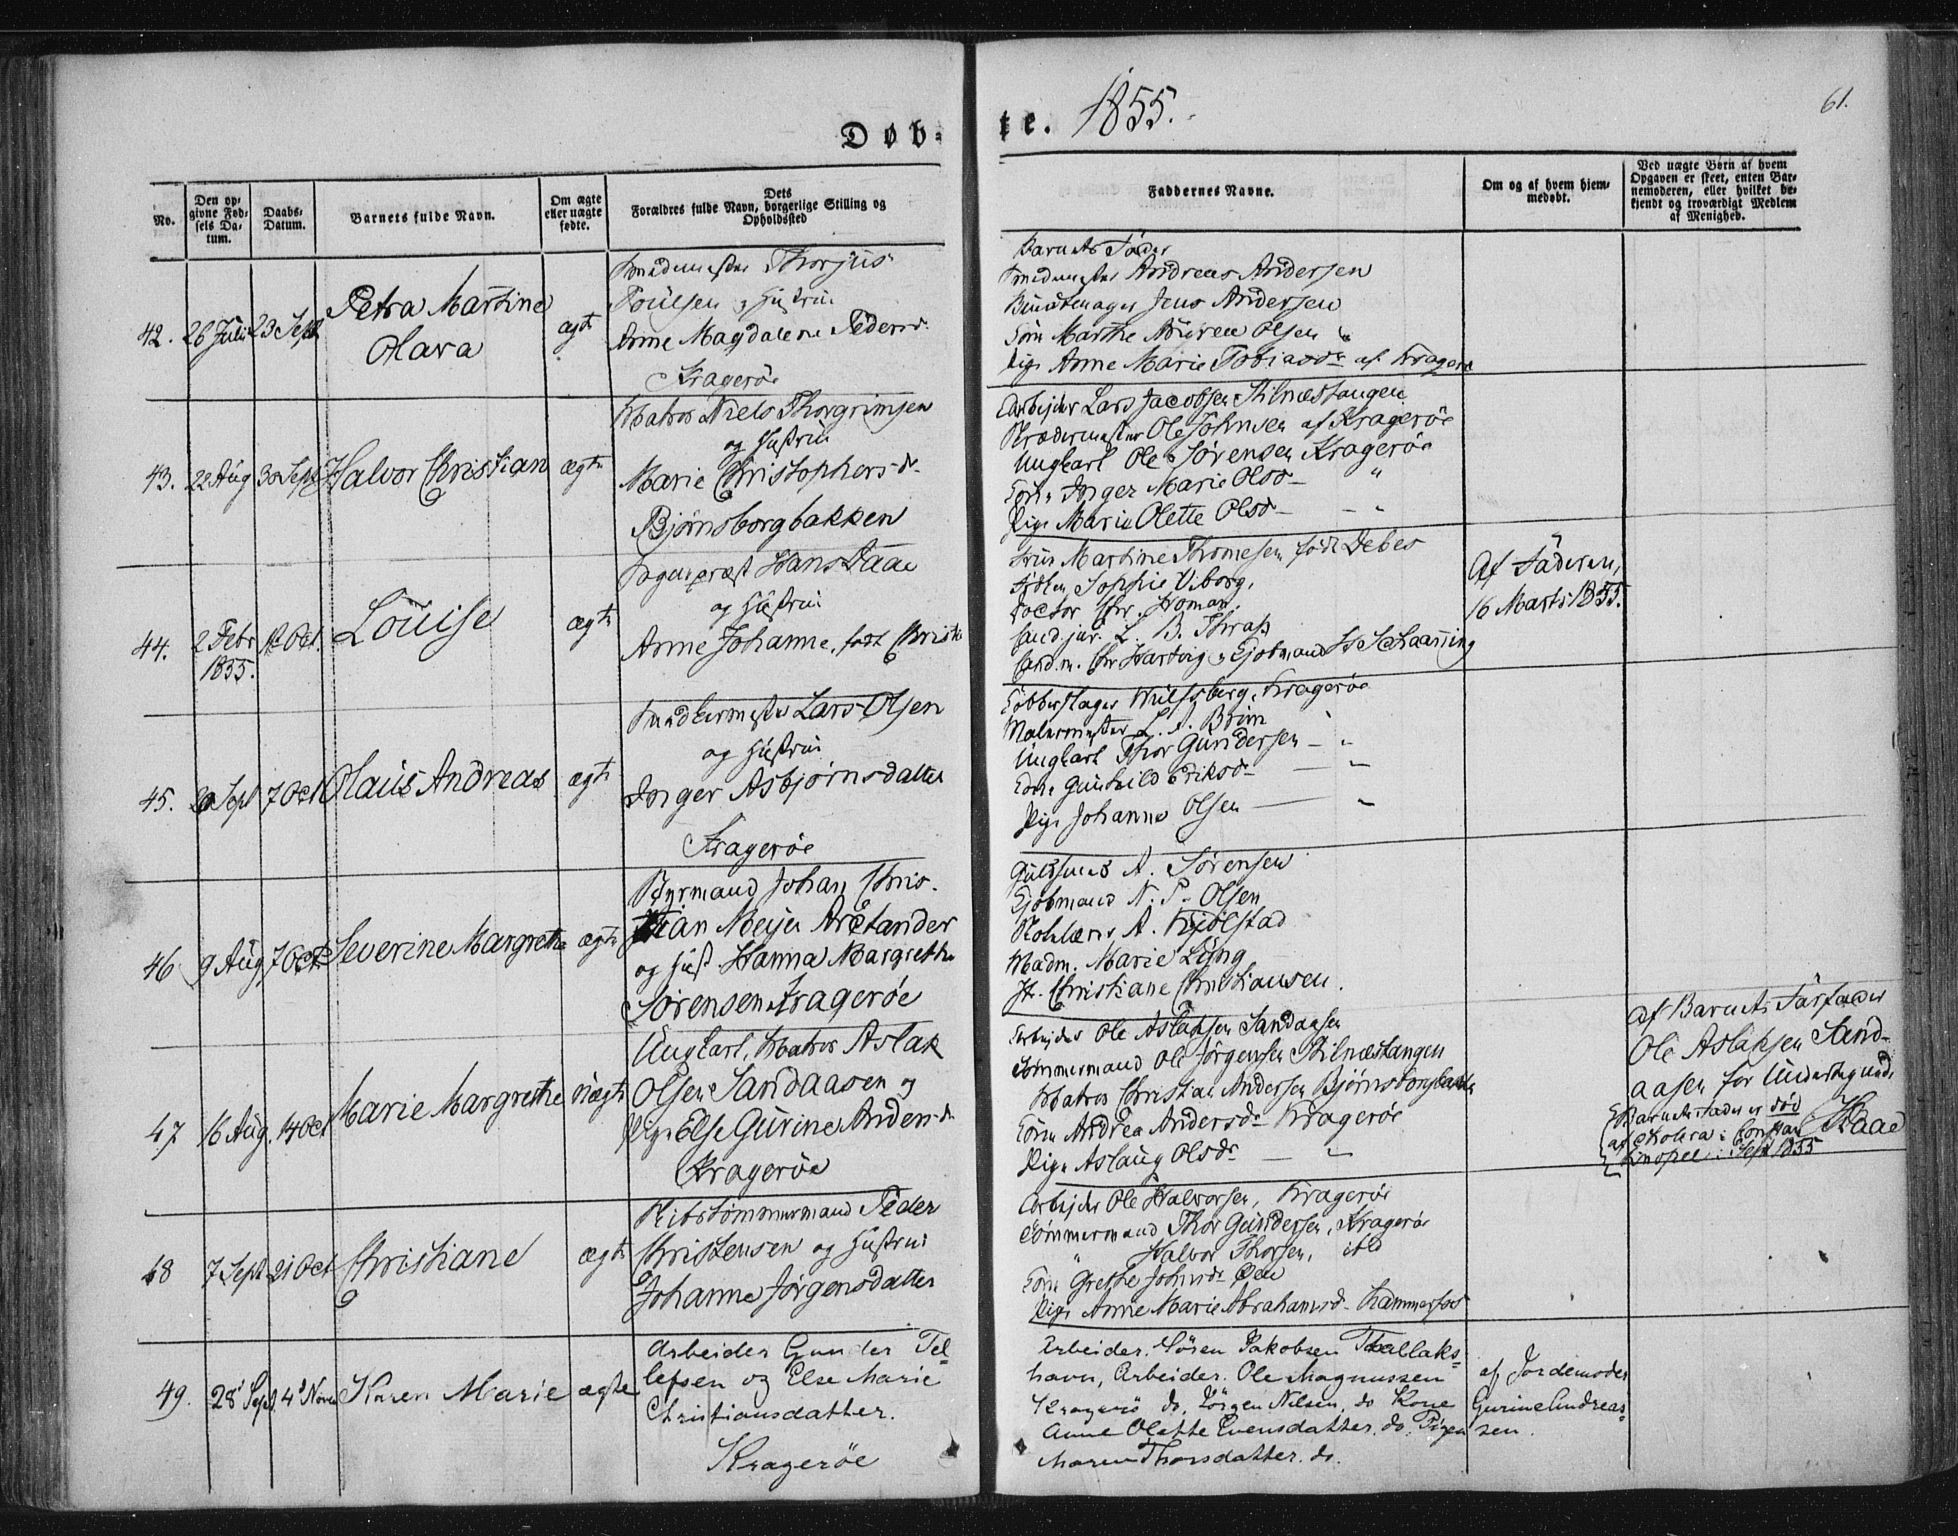 Døb-
te. 1855.
61.
No.
Den op-
givne Fød-
sels Da-
tum.
Daabs-
Datum.
Barnets fulde Navn.
Om ægte
eller uægte
fødte.
Dets
Forældres fulde Navn, borgerlige Stilling og
Opholdssted
Faddernes Navne.
Om og af hvem hjem-
medøbt.
Ved uægte Børn af hvem
Opgaven er skeet, enten Bar-
nemoderen, eller hvilket be-
kjendt og troværdigt Medlem
af Menighed.
42. 26 Juli 23 Sept
Petra Martine
Olava
ægt
Smedemester Thorjus
Poulsen og Hustru
Anne Magdalene Pedersd.
Kragerøe
Barnets Fader
Smedmester Andreas Andersen
Buntmager Jens Andersen
Kone Marthe Olsen "
Pige Anne Marie Tobiasdr af Kragerø
43. 22 Aug 30 Sept Halvor Christian ægte
Matros Niels Thorgrimsen
og Hustru
Marie Christophersd.
Bjørnsborgbakken
Arbejder Lars Jacobsen Stilnæstangen
Skrædermester Ole Johnsen af Kragerøe
Ungkarl Ole Sørensen Kragerøe
Kone Inger Marie Olsd "
Pige Marie Olette Olsd - "
44. 2 Febr
1855.
Oct. Louise ægte
Sognepræst Hans Daae
og Hustru
Anne Johanne, født Christie
Fru Martine Thomesen født Debes
Frøken Sophie Viborg,
Doctor Chr. Homan,
Cand. jur. L. B. Thrap
Cand. m. Chr Hartvig og Kjøbmand Schaanning
Af Faderen,
16 Marts 1855.
45. 20 Sept 7 Oct Olaus Andreas ægte
Lars Olsen
og Hustru
Inger Asbjørnsdatter
Kragerøe
Kobberslager Wulfsberg, Kragerøe
Malermester L. A. Brun "
Ungkarl Thor Gundersen - "
Kone Gunhild Eriksd - "
Pige Johanne Olsen - "
46 9 Aug 7 Oct Severine Margrethe ægte
Styrmand Johan Chris-
tian Meyer Arctander
og Hust. Hanna Margrethe
Sørensen Kragerøe
Guldsmed A. Sørensen
Kjøbmand N. P. Olsen
Skolelærer A. Kjølstad
Madm. Marie Ljung
Jf. Christiane Christiansen.
47 16 Aug. 14 Oct Marie Margrethe uægte
Ungkarl, Matros Aslak
Olsen Sandaasen og
Pige Else Gurine Andersd
Kragerøe
Arbejder Ole Aslaksen Sandaasen
Tømmermand Ole Jørgensen Stilnæstangen
Matros Christian Andersen Bjørnsborgbakken
Kone Andrea Andersd Kragerøe
Pige Aslaug Olsdr - "
af Barnets Farfader
Ole Aslaksen Sand-
aasen for Undertegnede
Daae
Barnefaderen er død
af Kolera i Constan-
tinopel i Sept 1855
48 7 Sept 21 Oct Christiane ægte
Skibstømmermand Peder
Christensen og Hustru
Johanne Jørgensdatter
Arbejder Ole Halvorsen, Kragerøe
Tømmermand Thor Gundersen, Kragerøe
" Halvor Thorsen, ibid
Kone Grethe Johnsdr Øen
Pige Anne Marie Abrahamsd- Kammerfos
49. 28 Sept. 4 Novbr Karen Marie ægte
Arbeider Gunder Tel-
lefsen og Else Marie
Christiansdatter.
Kragerøe
Arbeider Søren Jakobsen Thallaks-
havn, Arbeider Ole Magnussen
Kragerø do, Jörgen Nilsen, do Kone
Anne Olette Evensdatter do. Pigen
Maren Thorsdatter do.
af Jordemoder
Gurine Andreas-
sen.